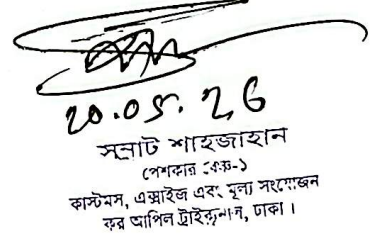 20.05.26
সম্রাট শাহজাহান
পেশকার
কাস্টমস, এক্সাইজ এবং মূল্য সংযোজন
কর আপিল ট্রাইব্যুনাল, ঢাকা।